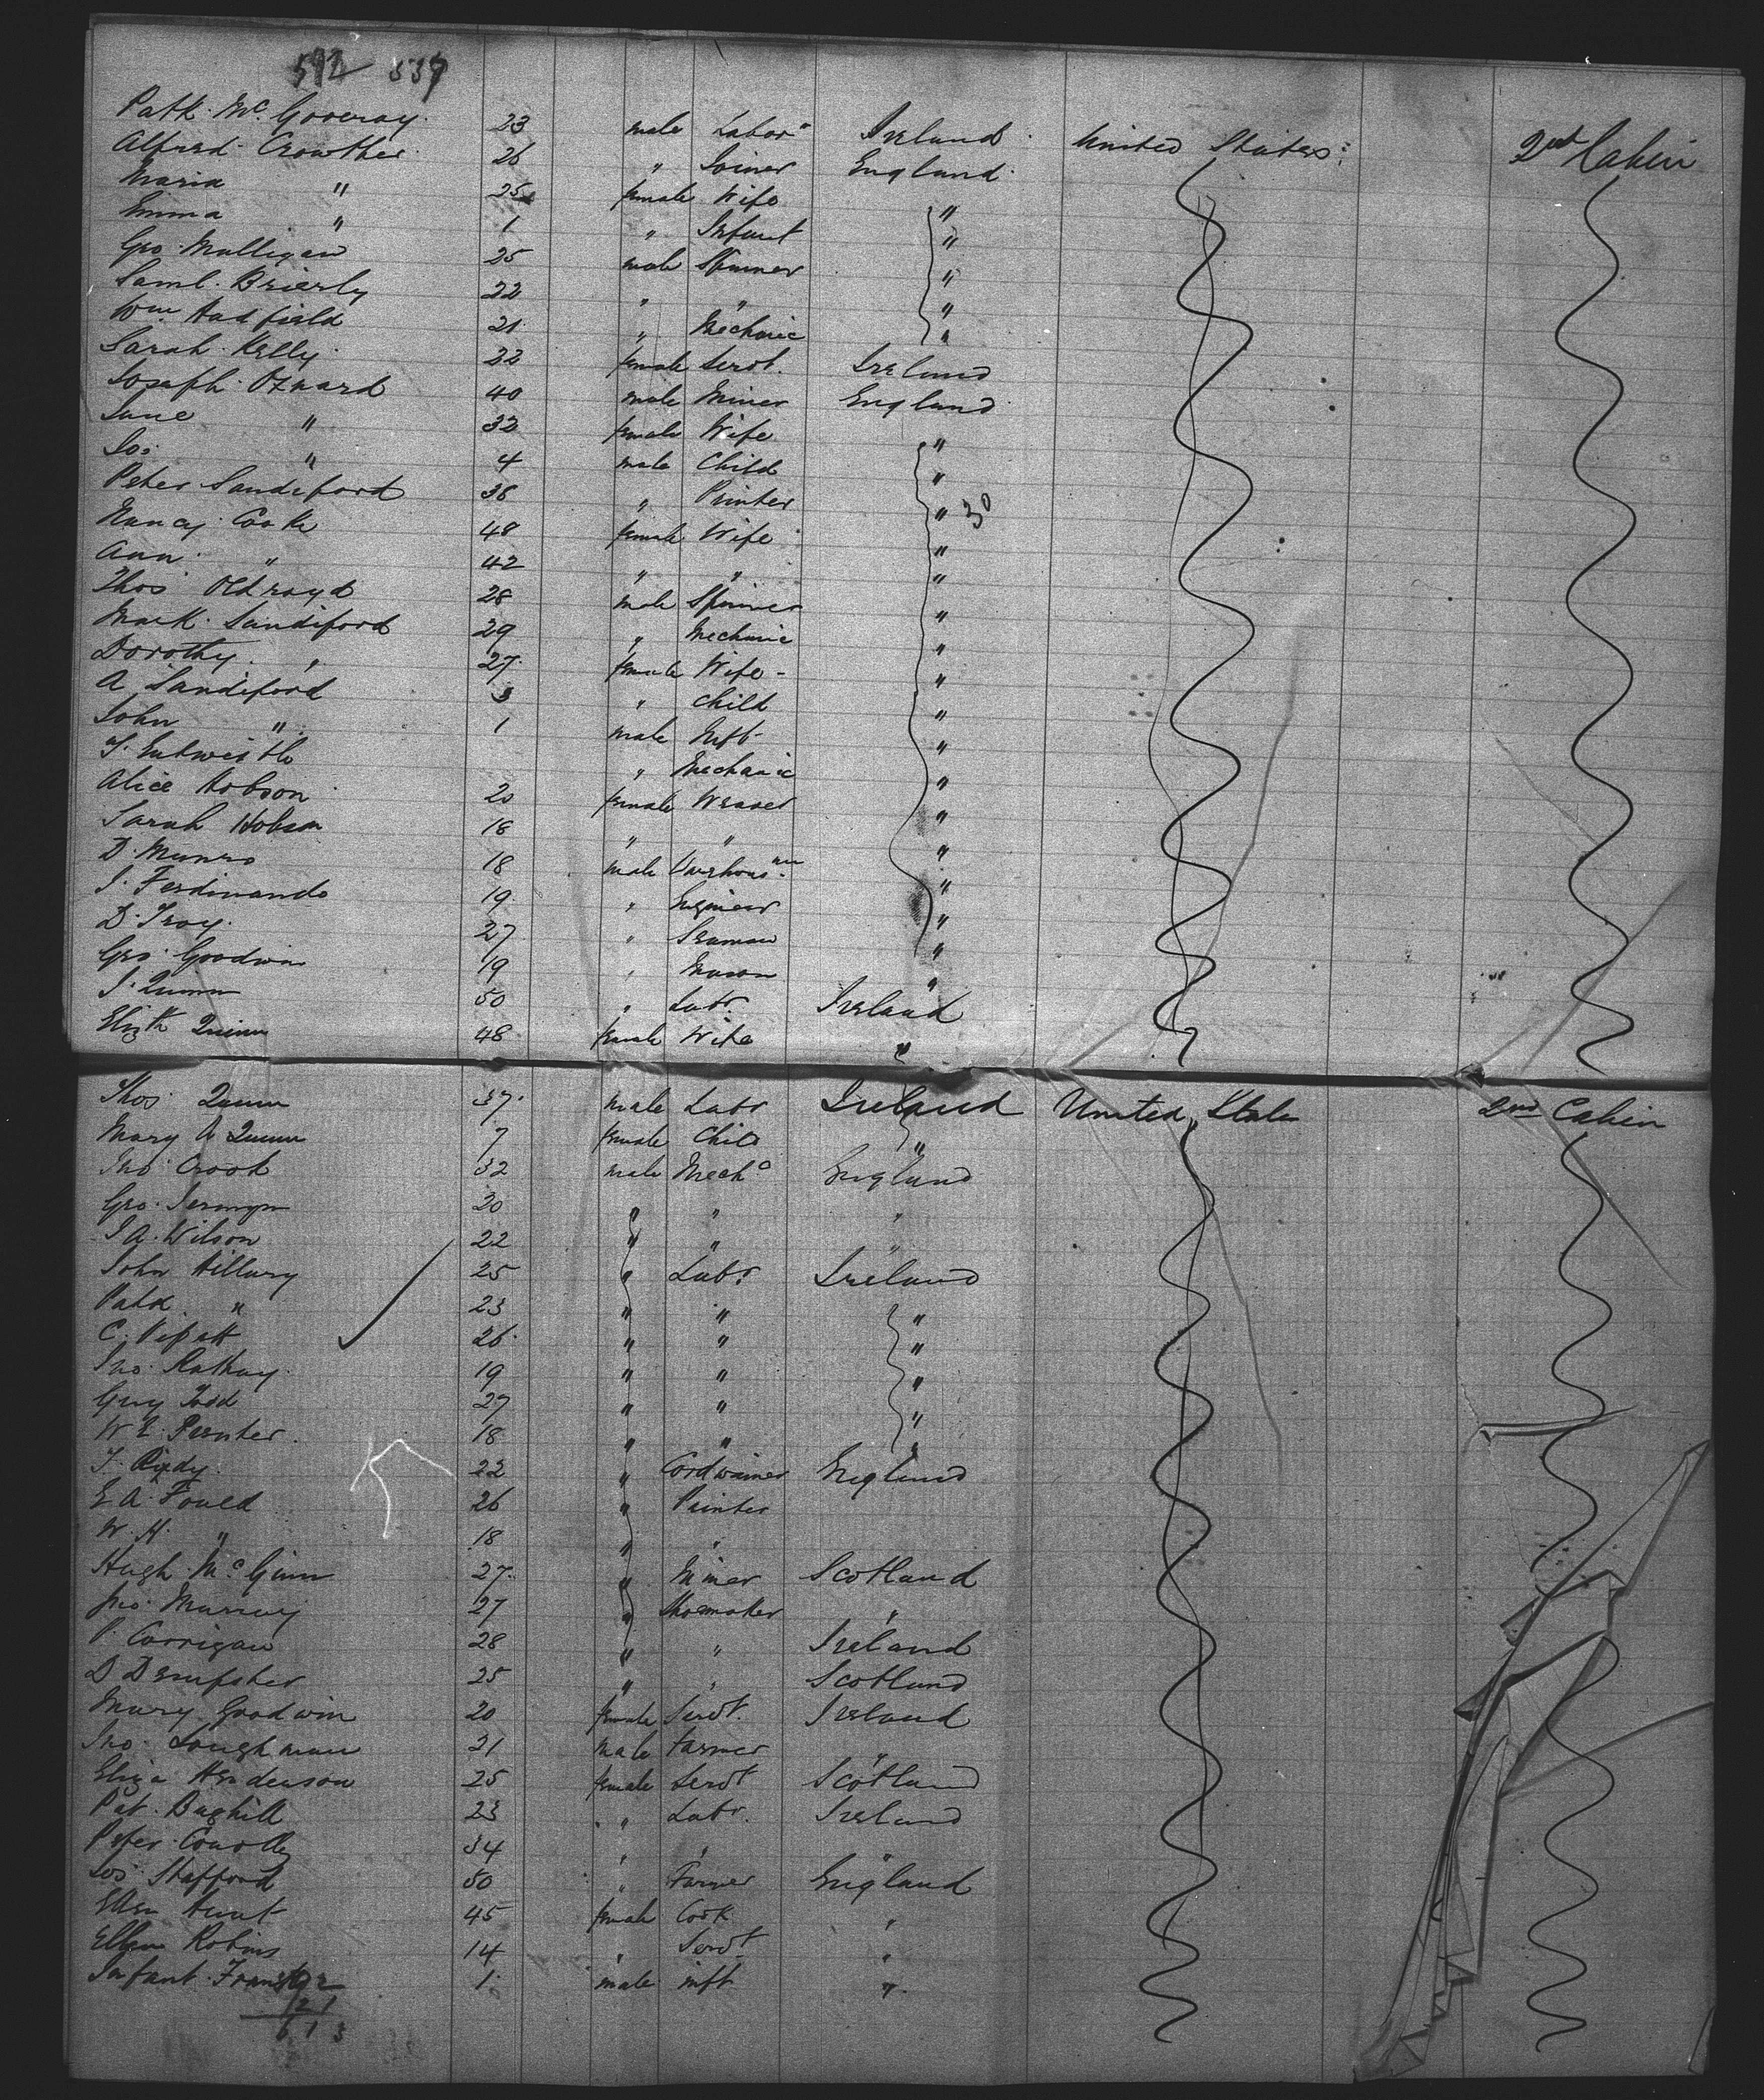 592 537
Patk. Mc Goveray. 23 male Labor Ireland United States 2nd Cabin
Alfred Crowther 26 " Joiner England
Maria " 25 female Wife "
Emma " 1 " Infant "
Geo. Mulligan 25 male Spinner "
Saml. Brierly 22 " " "
Wm Hadfield 21 " Mechanic "
Sarah Kelly 22 female Servt. Ireland
Joseph Ozzard 40 male Miner England
Jane " 32 female Wife "
Jos: " 4 male Child "
Peter Sandiford 36 " Printer " 30
Nancy Cooke 48 female Wife "
Ann " 42 " " "
Thos Oldroyd 28 male Spinner "
Mark Sandiford 29 " Mechanic "
Dorothy " 27 female Wife "
A Sandiford 3 " Child "
John " 1 male Inft "
T. Entwistle " Mechanic "
Alice Hobson 20 female Weaver "
Sarah Hobson 18 " " "
D. Munro 18 male "
J. Ferdinando 19 " Engineer "
D. Troy. 27 " Seaman "
Geo. Goodwin 19 " Mason "
J. Quinn 50 " Labr. Ireland
Elizth Quinn 48 female Wife "
Thos Quinn 37 male Labr Ireland United States 2nd Cabin
Mary A Quinn 7 female Child "
Jno Crook 32 male Mechc England
Geo. Jermyn 20 " " "
J A. Wilson 22 " " "
John Hillary 25 " Labr Ireland
Patk. " 23 " " "
C. 26 " " "
Jno. Rathay. 19 " " "
Guy Todd 27 " " "
W E. Pernter 18 " " "
T. 22 " Cordwainer England
E A. Fould 26 " Printer
W. H. " 18 " "
Hugh Mc Ginn 27 " Miner Scotland
Jno. Murray 27 " Shoemaker "
P. Corrigan 28 " " Ireland
D Dempster 25 " " Scotland
Mary Goodwin 20 female Servt. Ireland
Jno. Loughman 21 male Farmer "
Eliza Henderson 25 female Servt Scotland
Pat. Baghill 23 " Labr. Ireland
Peter Conolly 34 " " "
Jos. Stafford 50 " Farmer England
Ellen Hunt 45 female Cook "
Ellen Robins 14 " Servt "
Infant 1 male inft "
121
613